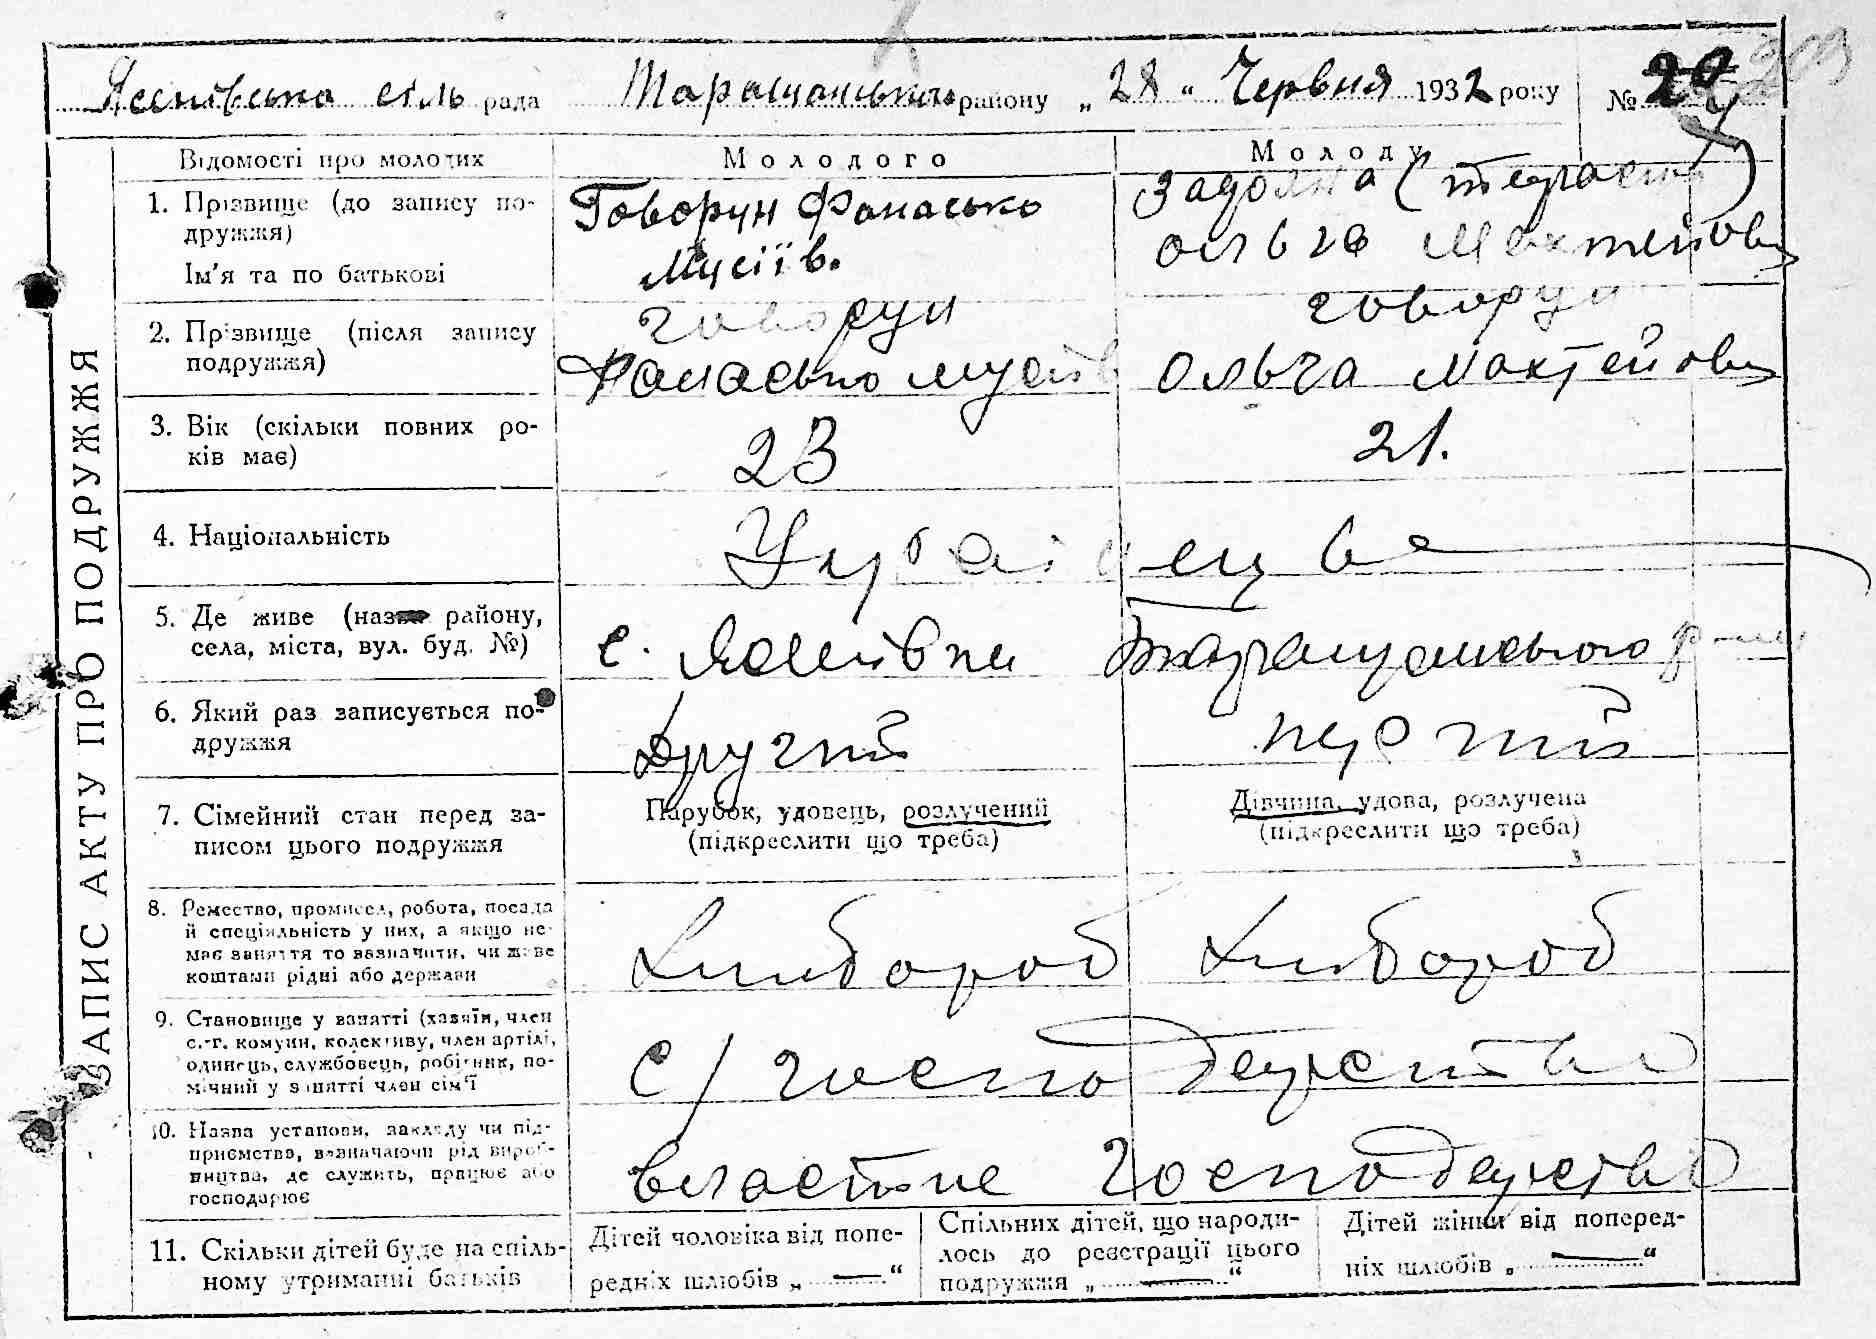 Ясенівська сіль рада Таращанського району „28“ Червня 1932 року № 29
ЗАПИС АКТУ ПРО ПОДРУЖЖЯ
Відомості про молодих
Молодого
Молоду
1. Прізвище (до запису подружжя)
Ім'я та по батькові
Говорун Фанасько
Мусіїв.
Ольга
2. Прізвище (після запису
подружжя)
говорун
Фанасько мусіїв
говорун
Ольга Мактейовна
3. Вік (скільки повних ро-
ків має)
23
21.
4. Національність
Українець ва
5. Де живе (назва району,
села, міста, вул. буд. №)
с. Ясенівки Таращанського р-ну
6. Який раз записується по-
дружжя
Другий
перший
7. Сімейний стан перед за-
писом цього подружжя
Парубок, удовець, розлучений
(підкреслити що треба)
Дівчина, удова, розлучена
(підкреслити що треба)
8. Ремество, промисел, робота, посада
й спеціяльність у них, а якщо не-
має заняття то зазначити, чи живе
коштами рідні або держави
Хлибороб
Хлибороб
9. Становище у занятті (хазяїн, член
с.-г. комуни, колективу, член артілі,
одинець, службовець, робітник, по-
мічний у занятті член сім'ї
с/господарства
10. Назва установи, закладу чи під-
приємства, зазначаючи рід вироб-
ництва, де служить, працює або
господарює
власне господарство
11. Скільки дітей буде на спіль-
ному утриманні батьків
Дітей чоловіка від попе-
редніх шлюбів „ — “
Спільних дітей, що народи-
лось до реєстрації цього
подружжя „ — “
Дітей жінки від поперед-
ніх шлюбів „ — “